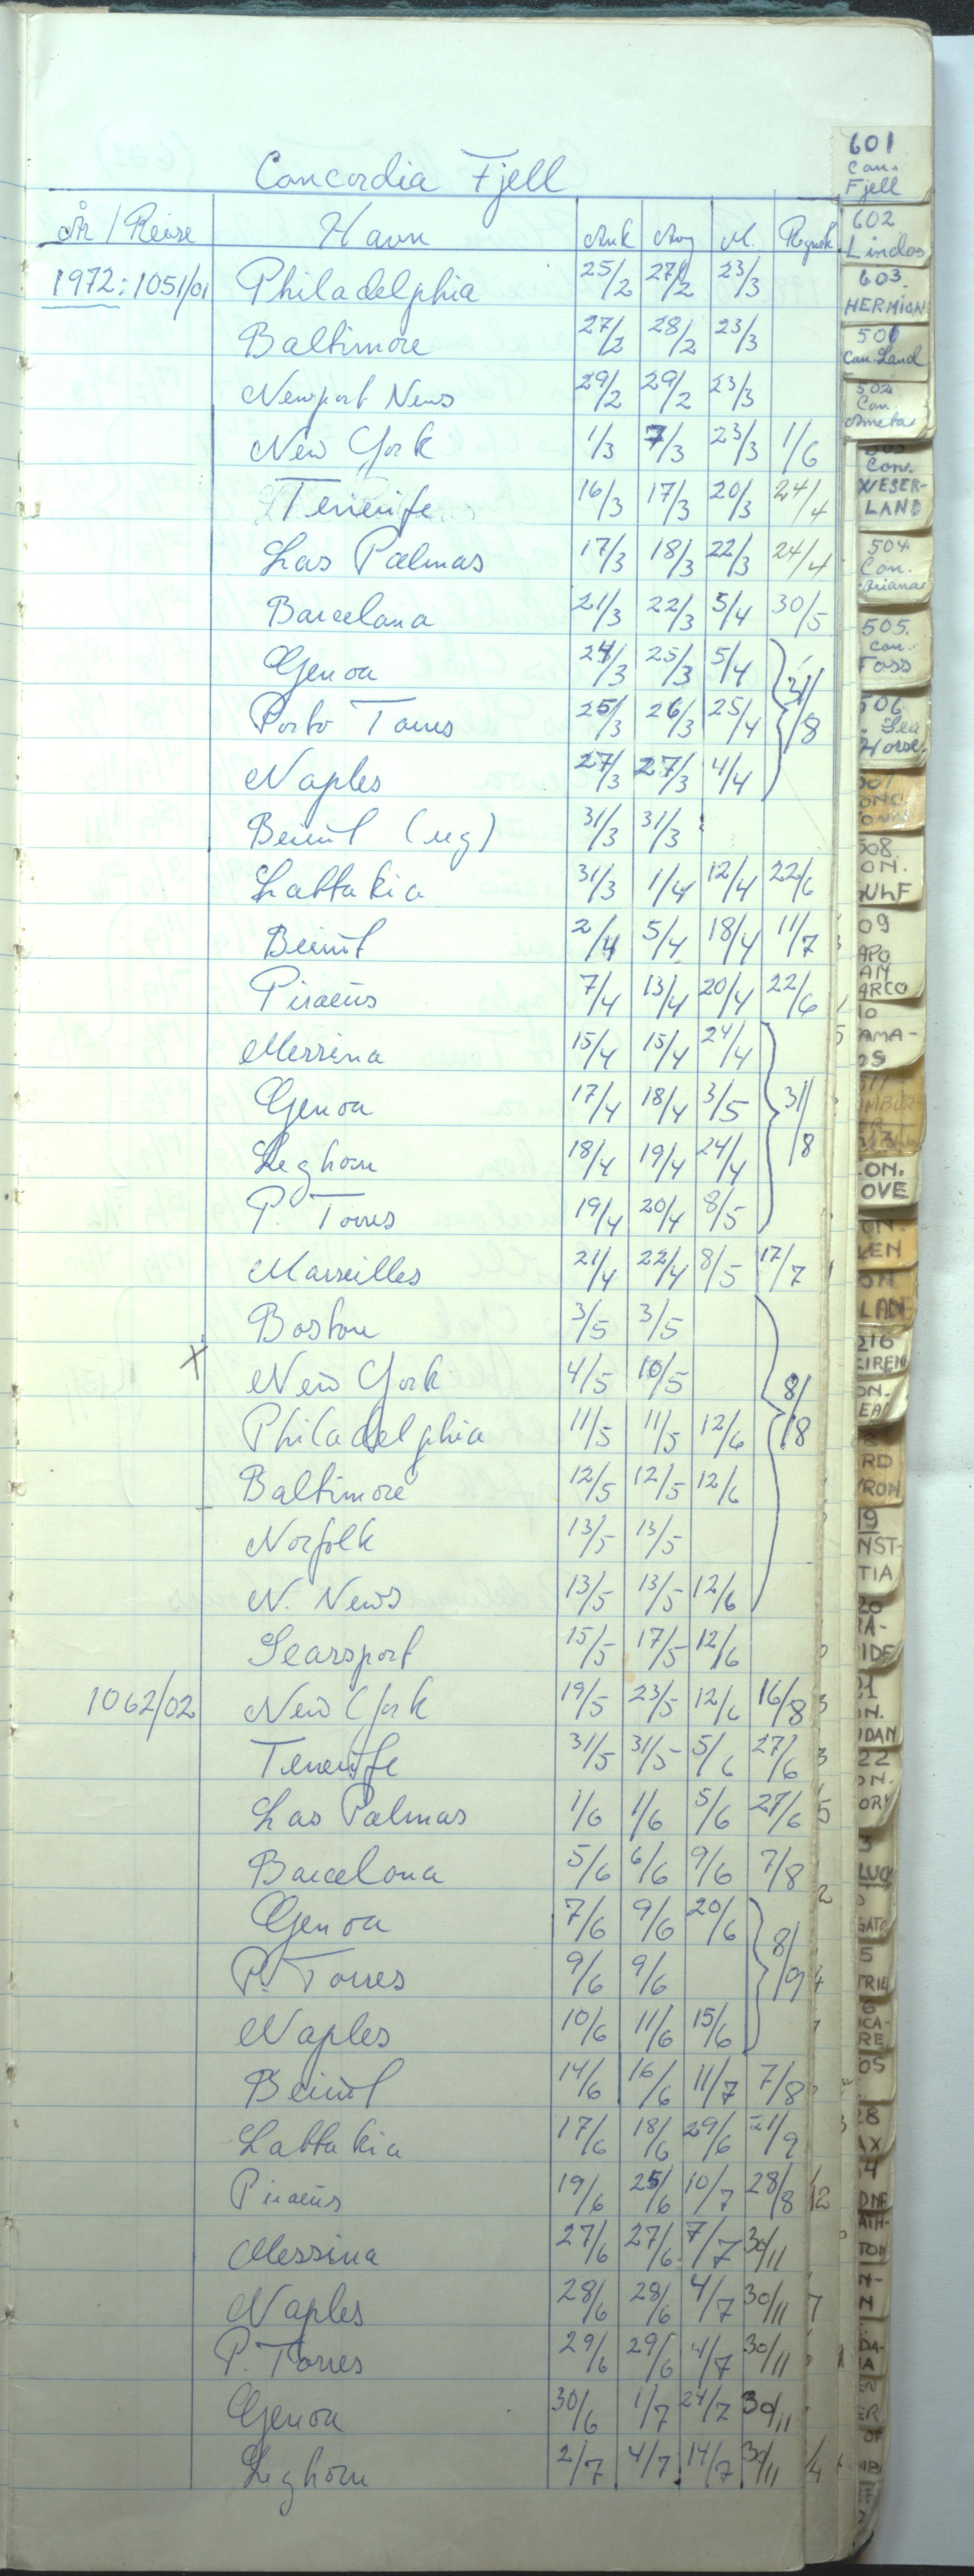 Concordia Fjell
År / Reise Havn Ank Avg M. Regnsk.
1972: 1051/01 Philadelphia 25/2 27/2 23/3
Baltimore 27/2 28/2 23/3
Newport News 29/2 29/2 23/3
New York 1/3 7/3 23/3 1/6
Tenerife 16/3 17/3 20/3 24/4
Las Palmas 17/3 18/3 22/3 24/4
Barcelona 21/3 22/3 5/4 30/5
Genoa 24/3 25/3 5/4
Porto Torres 25/3 26/3 25/4 31/8
Naples 27/3 27/3 4/4
Beirut (reg) 31/3 31/3
Lattakia 31/3 1/4 12/4 22/6
Beirut 2/4 5/4 18/4 11/7
Piraeus 7/4 13/4 20/4 22/6
Messina 15/4 15/4 24/4
Genoa 17/4 18/4 3/5 31/8
Leghorn 18/4 19/4 24/4
P. Torres 19/4 20/4 8/5
Marseilles 21/4 22/4 8/5 17/7
Boston 3/5 3/5
X New York 4/5 10/5 8/8
Philadelphia 11/5 11/5 12/6
Baltimore 12/5 12/5 12/6
Norfolk 13/5 13/5
N. News 13/5 13/5 12/6
Searsport 15/5 17/5 12/6
1062/02 New York 19/5 23/5 12/6 16/8
Tenerife 31/5 31/5 5/6 27/6
Las Palmas 1/6 1/6 5/6 27/6
Barcelona 5/6 6/6 9/6 7/8
Genoa 7/6 9/6 20/6
P. Torres 9/6 9/6 8/9
Naples 10/6 11/6 15/6
Beirut 14/6 16/6 11/7 7/8
Lattakia 17/6 18/6 29/6 21/9
Piraeus 19/6 25/6 10/7 28/8
Messina 27/6 27/6 7/7 30/11
Naples 28/6 28/6 4/7 30/11
P. Torres 29/6 29/6 4/7 30/11
Genoa 30/6 1/7 24/7 30/11
Leghorn 2/7 4/7 14/7 30/11
601
Con.
Fjell
602
Lindos
603.
HERMION
501
Con. Land
502
Con.
Con.
WESER-
LAND
504
Con.
505.
Con.
Foss
506
Sea
Horse.
508
ON.
09
APO
AN
ARCO
10
AMA-
OS
ON.
OVE
LEN
ON
LAND
216
EIREN
ON.
RD
YRON
19
NST-
TIA
20
IDE
21
N.
22
ON.
ORY
LUC